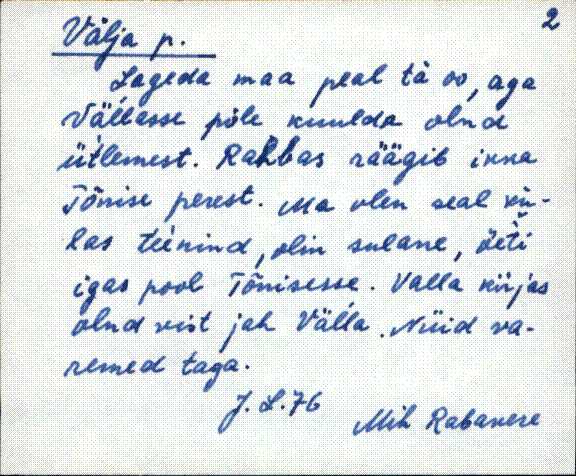 2
Välja p.
Lageda maa peal tä oo, aga
Väĺlasse põle kuulda olnd
ütlemest. Rahbas räägib ikka
Tõnise perest. Ma olen seal kü-
las teenind, olin sulane, õeti
igas pool Tõnisesse. Valla kirjas
olnd vist jah Väĺla. Nüid va-
remed taga.
J. L. 76
Mih Rabavere